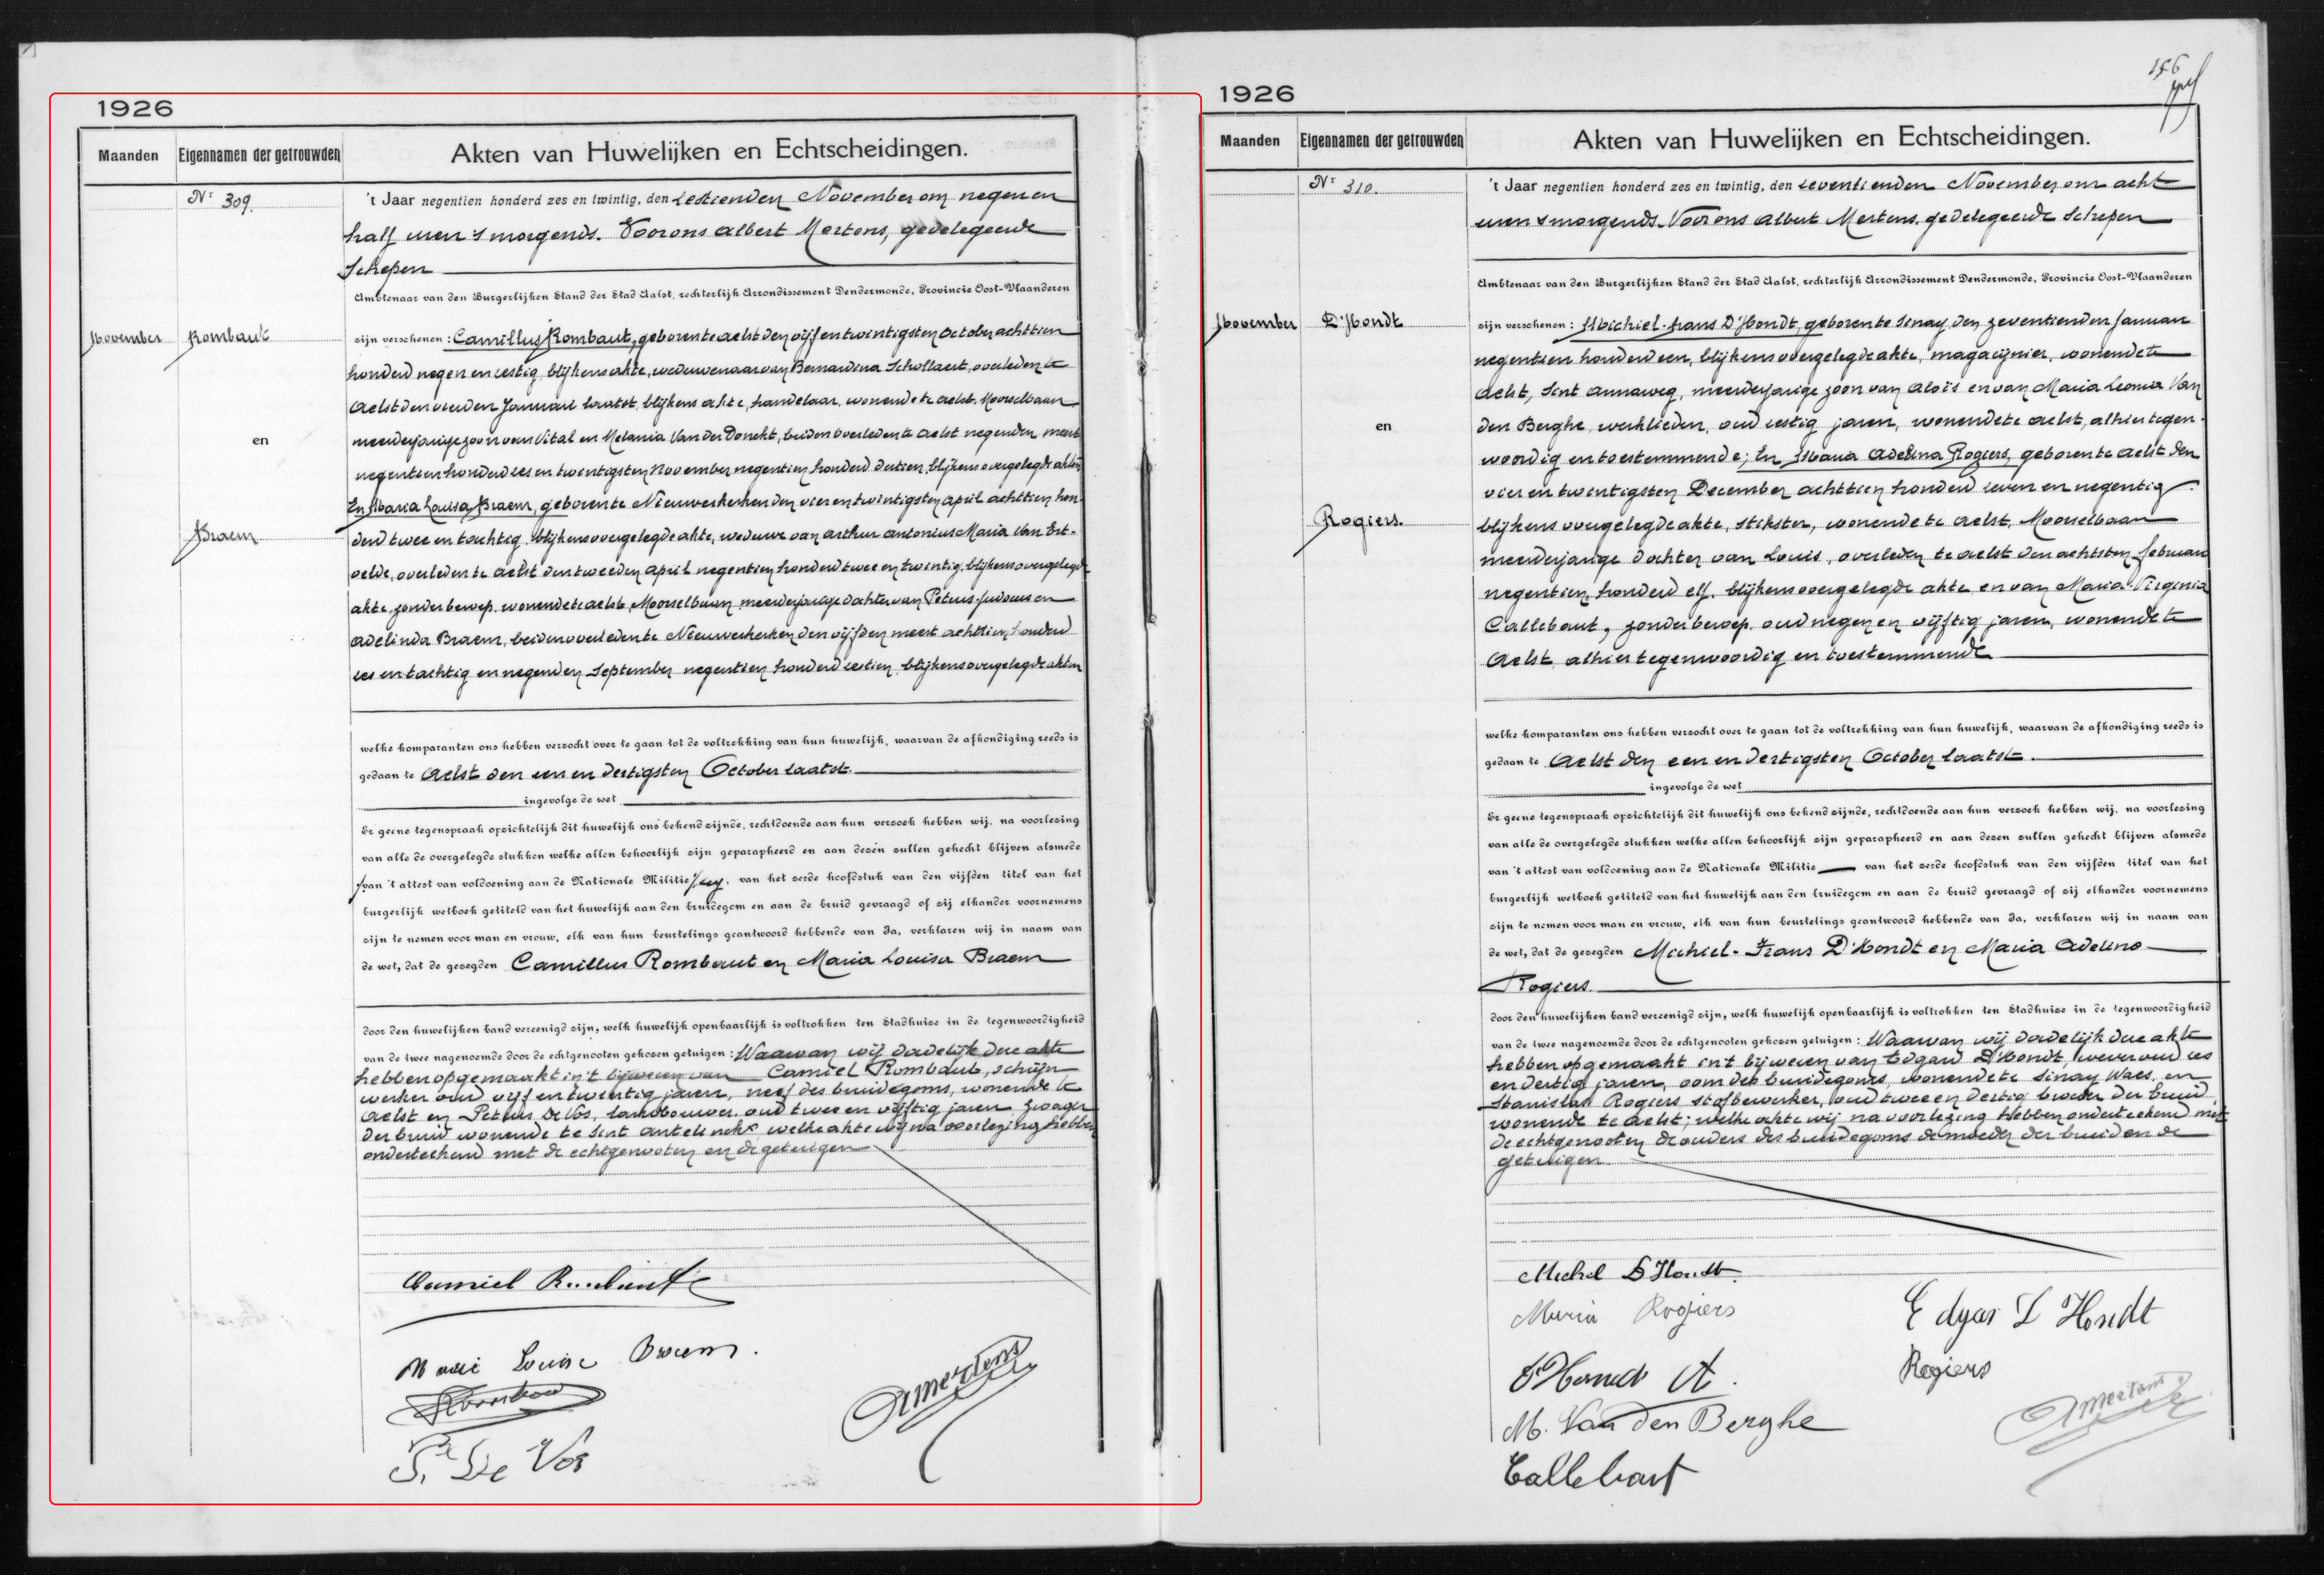 1926
Maanden Eigennamen der getrouwden Akten van Huwelijken en Echtscheidingen.
Nr 309.
't Jaar negentien honderd zes en twintig, den zestienden November om negen en
half uren 's morgends. Voor ons Albert Mertens, gedelegeerde
Schepen
Ambtenaar van den Burgerlijken Stand der Stad Aalst, rechterlijk Arrondissement Dendermonde, Provincie Oost-Vlaanderen
November Rombaut
en
Braem
zijn verschenen : Camillus Rombaut, geboren te Aelst den vijf en twintigsten October achttien
honderd negen en zestig, blijkens akte, weduwenaar van Bernardina Schollaert, overleden te
Aelst den vierden Januari laatst, blijkens akte, handelaar, wonende te Aelst, Moorselbaan
meerderjarige zoon van Vital en Melania Van der Donckt, beiden overleden te Aelst negenden meert
negentien honderd zes en twintigsten November negentien honderd dertien, blijkens overgelegde akten
En Maria Louisa Braem, geboren te Nieuwerkerken den vier en twintigsten April achttien hon-
derd twee en tachtig, blijkens overgelegde akte, weduwe van Arthur Antonius Maria Van Ert-
velde, overleden te Aelst den tweeden April negentien honderd twee en twintig, blijkens overgelegde
akte, zonder beroep, wonende te Aelst, Moorselbaan, meerderjarige dochter van Petrus-Judocus en
Adelinda Braem, beiden overleden te Nieuwerkerken den vijfden meert achttien honderd
zes en tachtig en negenden September negentien honderd zestien, blijkens overgelegde akten
welke komparanten ons hebben verzocht over te gaan tot de voltrekking van hun huwelijk, waarvan de afkondiging reeds is
gedaan te Aelst den een en dertigsten October laatst.
ingevolge de wet
Er geene tegenspraak opzichtelijk dit huwelijk ons bekend zijnde, rechtdoende aan hun verzoek hebben wij, na voorlezing
van alle de overgelegde stukken welke allen behoorlijk zijn geparapheerd en aan dezen zullen gehecht blijven alsmede
van 't attest van voldoening aan de Nationale Militie van het zesde hoofdstuk van den vijfden titel van het
burgerlijk wetboek getiteld van het huwelijk aan den bruidegom en aan de bruid gevraagd of zij elkander voornemens
zijn te nemen voor man en vrouw, elk van hun beurtelings geantwoord hebbende van Ja, verklaren wij in naam van
de wet, dat de gezegden Camillus Rombaut en Maria Louisa Braem
door den huwelijken band vereenigd zijn, welk huwelijk openbaarlijk is voltrokken ten Stadhuize in de tegenwoordigheid
van de twee nagenoemde door de echtgenooten gekozen getuigen : Waarvan wij dadelijk deze akte
hebben opgemaakt in 't bijwezen van Camiel Rombaut, schrijn-
werker oud vijf en twintig jaren, neef des bruidegoms, wonende te
Aelst en Petrus De Vos, landbouwer, oud twee en vijftig jaren, zwager
der bruid wonende te Sint Antelinckx, welke akte wij na voorlezing hebben
onderteekend met de echtgenooten en de getuigen
Camiel Rombaut
Marie Louise Braem.
Rombaut
P. De Vos
A Mertens
156
1926
Maanden Eigennamen der getrouwden Akten van Huwelijken en Echtscheidingen.
Nr 310.
't Jaar negentien honderd zes en twintig, den zeventienden November om acht
uren 's morgends. Voor ons Albert Mertens, gedelegeerde Schepen
Ambtenaar van den Burgerlijken Stand der Stad Aalst, rechterlijk Arrondissement Dendermonde, Provincie Oost-Vlaanderen
November D'Hondt
en
Rogiers.
zijn verschenen : Michiel-Frans D'Hondt, geboren te Sinay, den zeventienden Januari
negentien honderd een, blijkens overgelegde akte, magazijnier, wonende te
Aelst, Sint Annaweg, meerderjarige zoon van Aloïs en van Maria Leonia Van
den Berghe, werklieden, oud zestig jaren, wonende te Aelst, alhier tegen-
woordig en toestemmende; En Maria Adelina Rogiers, geboren te Aelst den
vier en twintigsten December achttien honderd zeven en negentig
blijkens overgelegde akte, stikster, wonende te Aelst, Moorselbaan
meerderjarige dochter van Louis, overleden te Aelst den achtsten februari
negentien honderd elf, blijkens overgelegde akte en van Maria-Virginia
Callebaut, zonder beroep, oud negen en vijftig jaren, wonende te
Aelst alhier tegenwoordig en toestemmende
welke komparanten ons hebben verzocht over te gaan tot de voltrekking van hun huwelijk, waarvan de afkondiging reeds is
gedaan te Aelst den een en dertigsten October laatst.
ingevolge de wet
Er geene tegenspraak opzichtelijk dit huwelijk ons bekend zijnde, rechtdoende aan hun verzoek hebben wij, na voorlezing
van alle de overgelegde stukken welke allen behoorlijk zijn geparapheerd en aan dezen zullen gehecht blijven alsmede
van 't attest van voldoening aan de Nationale Militie van het zesde hoofdstuk van den vijfden titel van het
burgerlijk wetboek getiteld van het huwelijk aan den bruidegom en aan de bruid gevraagd of zij elkander voornemens
zijn te nemen voor man en vrouw, elk van hun beurtelings geantwoord hebbende van Ja, verklaren wij in naam van
de wet, dat de gezegden Michiel-Frans D'Hondt en Maria Adelina
Rogiers.
door den huwelijken band vereenigd zijn, welk huwelijk openbaarlijk is voltrokken ten Stadhuize in de tegenwoordigheid
van de twee nagenoemde door de echtgenooten gekozen getuigen : Waarvan wij dadelijk deze akte
hebben opgemaakt in 't bijwezen van Edgard D'Hondt, wever oud zes
en dertig jaren, oom des bruidegoms, wonende te Sinay Waes, en
Stanislas Rogiers stofbewerker, oud twee en dertig broeder der bruid,
wonende te Aelst; welke akte wij na voorlezing hebben onderteekend met
de echtgenooten de ouders des bruidegoms de moeder der bruid en de
getuigen.
Michel D'Hondt.
Maria Rogiers
Edgar D'Hondt
D'Hondt A.
Rogiers
M. Van den Berghe
A Mertens
Callebaut